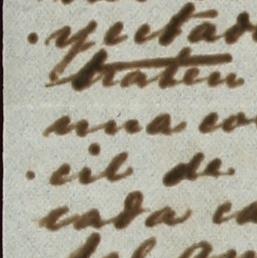 yectad
traten
una co
cil de
cada ca